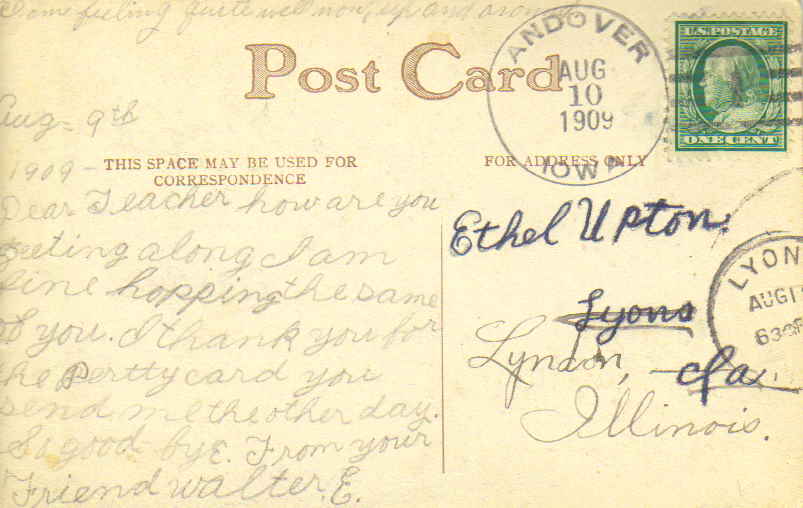 Come feeling quite well now, up and around
Post Card
ANDOVER
AUG
10
1909
IOWA
U.S. POSTAGE
ONE CENT
Aug - 9th
1909 -
THIS SPACE MAY BE USED FOR
CORRESPONDENCE
FOR ADDRESS ONLY
Dear Teacher how are you
geeting along I am
fine hopping the same
of you. I thank you for
the pertty card you
send me the other day.
So good bye. From your
Friend Walter. E.
Ethel Upton.
Lyons
Lyndon, Ia.
Illinois.
LYON
AUG 1
630P